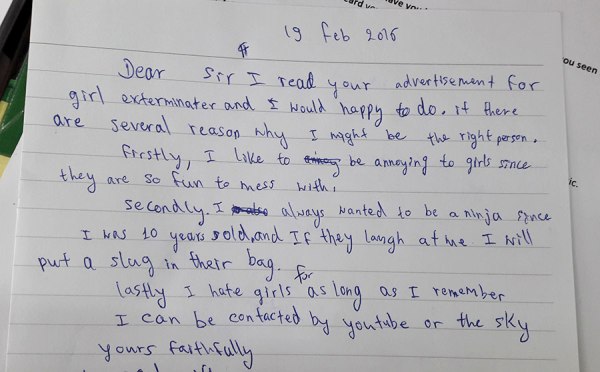 ave you
ard yo
19 feb 2016
ou seen
Dear Sir I read your advertisement for
girl exterminater and I would happy to do. it there
are several reason why I might be the right person.
firstly, I like to annoy be annoying to girls since
they are so fun to mess with.
ic.
secondly. I always wanted to be a ninja since
I was 10 years old, and If they laugh at me I will
put a slug in their bag.
lastly I hate girls for as long as I remember
I can be contacted by youtube or the sky
yours faithfully